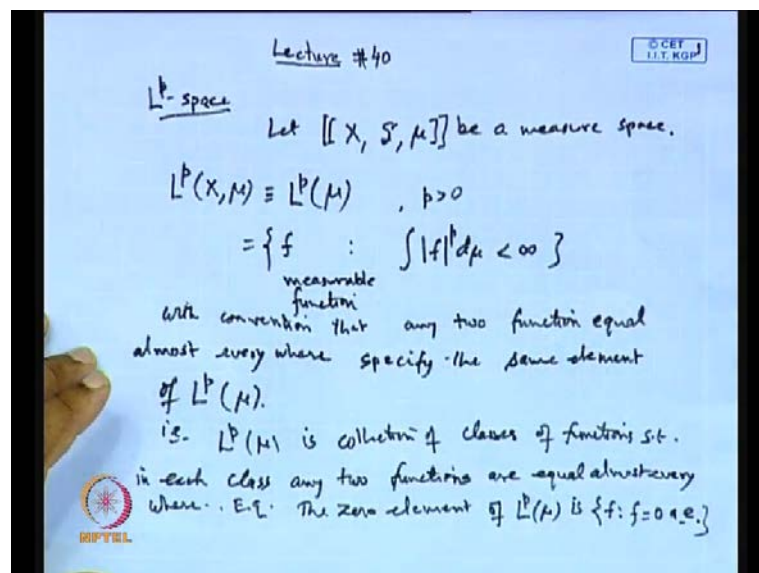 Lecture #40
© CET
I.I.T. KGP
1
L^p - space
Let [[ X, S, μ ]] be a measure space.
L^p(X, μ) ≡ L^p(μ) , p>0
= { f : ∫ |f|^p dμ < ∞ }
measurable
function
with convention that any two function equal
almost every where specify the same element
of L^p(μ).
i.e. L^p(μ) is collection of classes of functions s.t.
in each class any two functions are equal almost every
where.. E.g. The zero element of L^p(μ) is {f: f=0 a.e.}
NPTEL